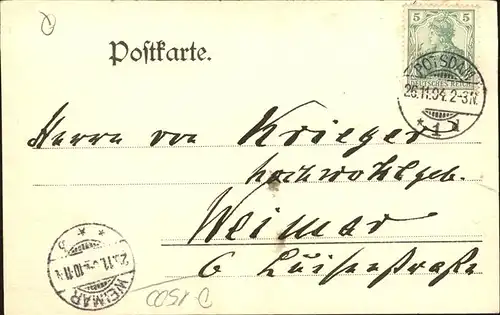 Postkarte.
5 5
DEUTSCHES REICH
POTSDAM
26.11.04. 2-3N.
* 1
Herrn von Krieger
hochwohlgeb.
Weimar
6 Luisenstraße
WEIMAR
1500